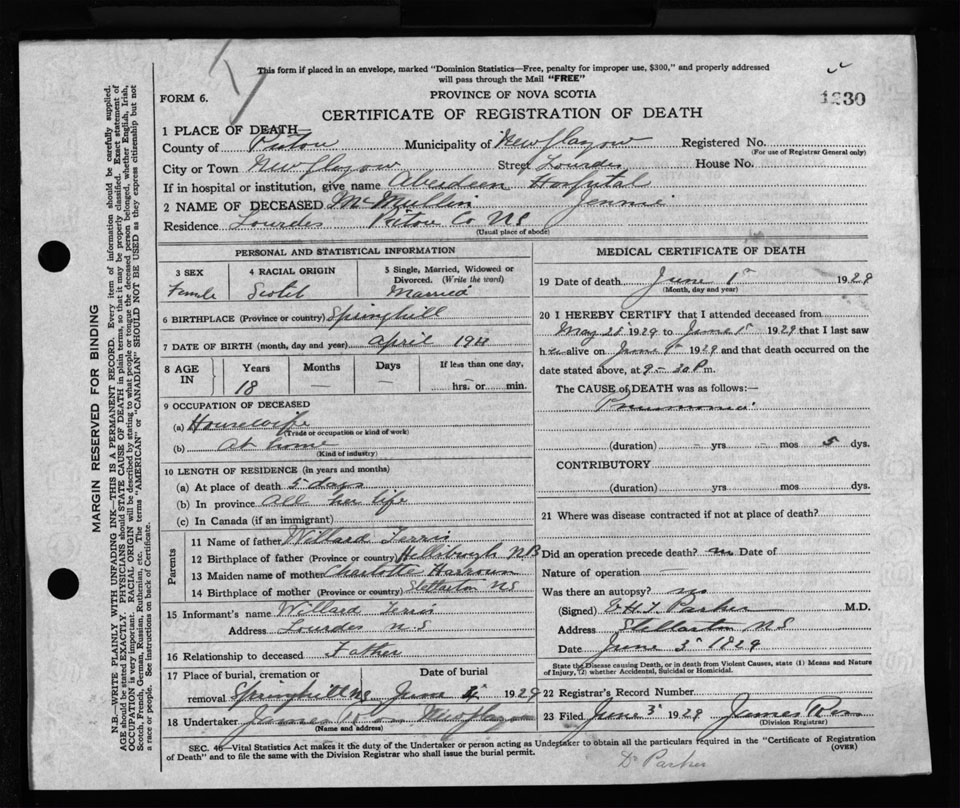 This form if placed in an envelope, marked "Dominion Statistics—Free, penalty for improper use, $300," and properly addressed
will pass through the Mail "FREE"
PROVINCE OF NOVA SCOTIA
FORM 6.
1230
CERTIFICATE OF REGISTRATION OF DEATH
1 PLACE OF DEATH
County of Pictou Municipality of New Glasgow Registered No.
(For use of Registrar General only)
City or Town New Glasgow Street Lourdes House No.
If in hospital or institution, give name Aberdeen Hospital
2 NAME OF DECEASED McMullin Jennie
Residence Lourdes Pictou Co NS
(Usual place of abode)
PERSONAL AND STATISTICAL INFORMATION
3 SEX 4 RACIAL ORIGIN 5 Single, Married, Widowed or Divorced. (Write the word)
Female Scotch Married
6 BIRTHPLACE (Province or country) Springhill
7 DATE OF BIRTH (month, day and year) April 1911
8 AGE IN Years Months Days If less than one day,
18 — — hrs or min.
9 OCCUPATION OF DECEASED
(a) Housewife
(Trade or occupation or kind of work)
(b) At home
(Kind of industry)
10 LENGTH OF RESIDENCE (in years and months)
(a) At place of death 5 days
(b) In province All her life
(c) In Canada (if an immigrant)
Parents
11 Name of father Willard Ferris
12 Birthplace of father (Province or country) Hillsborough NB
13 Maiden name of mother Charlotte
14 Birthplace of mother (Province or country) Stellarton NS
15 Informant's name Willard Ferris
Address Lourdes N.S
16 Relationship to deceased Father
17 Place of burial, cremation or removal Springhill NS Date of burial June 4 1929
18 Undertaker James Ross New Glasgow
(Name and address)
MEDICAL CERTIFICATE OF DEATH
19 Date of death June 1st 1929
(Month, day and year)
20 I HEREBY CERTIFY that I attended deceased from
May 28 1929 to June 1st 1929 that I last saw
her alive on June 1st 1929 and that death occurred on the
date stated above, at 9-30 P m.
The CAUSE of DEATH was as follows:—
Pneumonia
(duration) - yrs - mos 5 dys.
CONTRIBUTORY
(duration) yrs mos dys.
21 Where was disease contracted if not at place of death?
Did an operation precede death? no Date of
Nature of operation —
Was there an autopsy? no
(Signed) Parker M.D.
Address Stellarton NS
Date June 3 1929
State the Disease causing Death, or in death from Violent Causes, state (1) Means and Nature
of Injury, (2) whether Accidental, Suicidal or Homicidal.
22 Registrar's Record Number
23 Filed June 3 1929 James Ross
(Division Registrar)
SEC. 46—Vital Statistics Act makes it the duty of the Undertaker or person acting as Undertaker to obtain all the particulars required in the "Certificate of Registration
of Death" and to file the same with the Division Registrar who shall issue the burial permit. (OVER)
Dr Parker
MARGIN RESERVED FOR BINDING
N.B.—WRITE PLAINLY WITH UNFADING INK—THIS IS A PERMANENT RECORD. Every item of information should be carefully supplied.
AGE should be stated EXACTLY. PHYSICIANS should STATE CAUSE OF DEATH in plain terms, so that it may be properly classified. Exact statement of
OCCUPATION is very important. RACIAL ORIGIN will be described by stating to what people or tongue the deceased person belonged, whether English, Irish,
Scotch, French, German, Russian, Ruthenian, etc. The terms "AMERICAN" or "CANADIAN" SHOULD NOT BE USED as they express citizenship but not
a race or people. See instructions on back of Certificate.